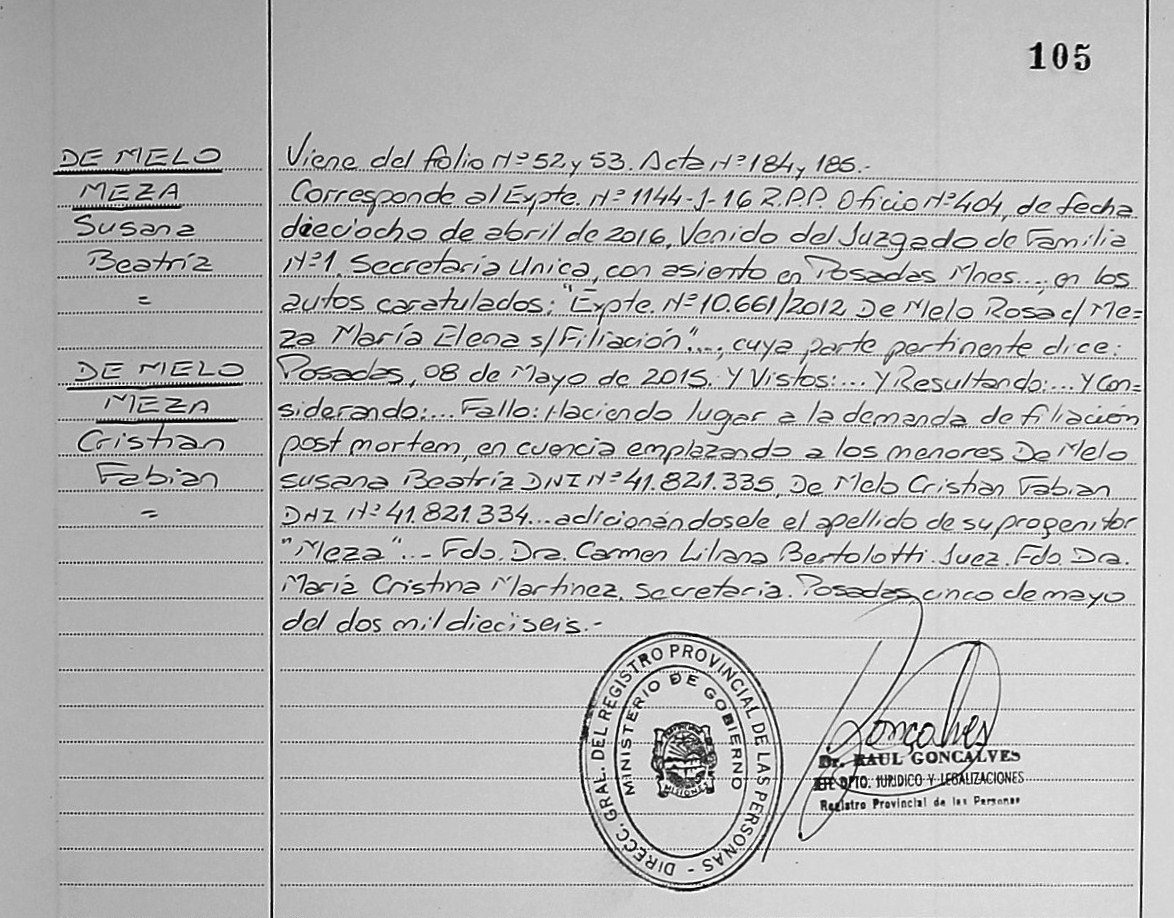 105
DE MELO
MEZA
Susana
Beatriz
=
DE MELO
MEZA
Cristhian
Fabian
=
Viene del folio Nº 52 y 53. Acta Nº 184 y 185.-
Corresponde al Expte. Nº 1144-J-16 R.P.P. Oficio Nº 404, de fecha
dieciocho de abril de 2016, Venido del Juzgado de Familia
Nº 1. Secretaria Unica, con asiento en Posadas Mnes...; en los
autos caratulados: "Expte. Nº 10.661/2012 De Melo Rosa c/ Me=
za María Elena s/Filiación"..., cuya parte pertinente dice:
Posadas, 08 de Mayo de 2015. Y Vistos:... Y Resultando:... Y Con=
siderando:... Fallo: Haciendo lugar a la demanda de filiación
post mortem, en cuencia emplazando a los menores De Melo
Susana Beatriz DNI Nº 41.821.335, De Melo Cristian Fabian
DNI Nº 41.821.334... adicionándosele el apellido de su progenitor
"Meza"... Fdo. Dra. Carmen Liliana Bertolotti. Juez. Fdo. Dra.
María Cristina Martinez, Secretaria. Posadas, cinco de mayo
del dos mil dieciseis.-
DIRECC. GRAL. DEL REGISTRO PROVINCIAL DE LAS PERSONAS -
MINISTERIO DE GOBIERNO
MISIONES
Goncalves
Dr. RAUL GONCALVES
JEFE DPTO. JURIDICO Y LEGALIZACIONES
Registro Provincial de las Personas